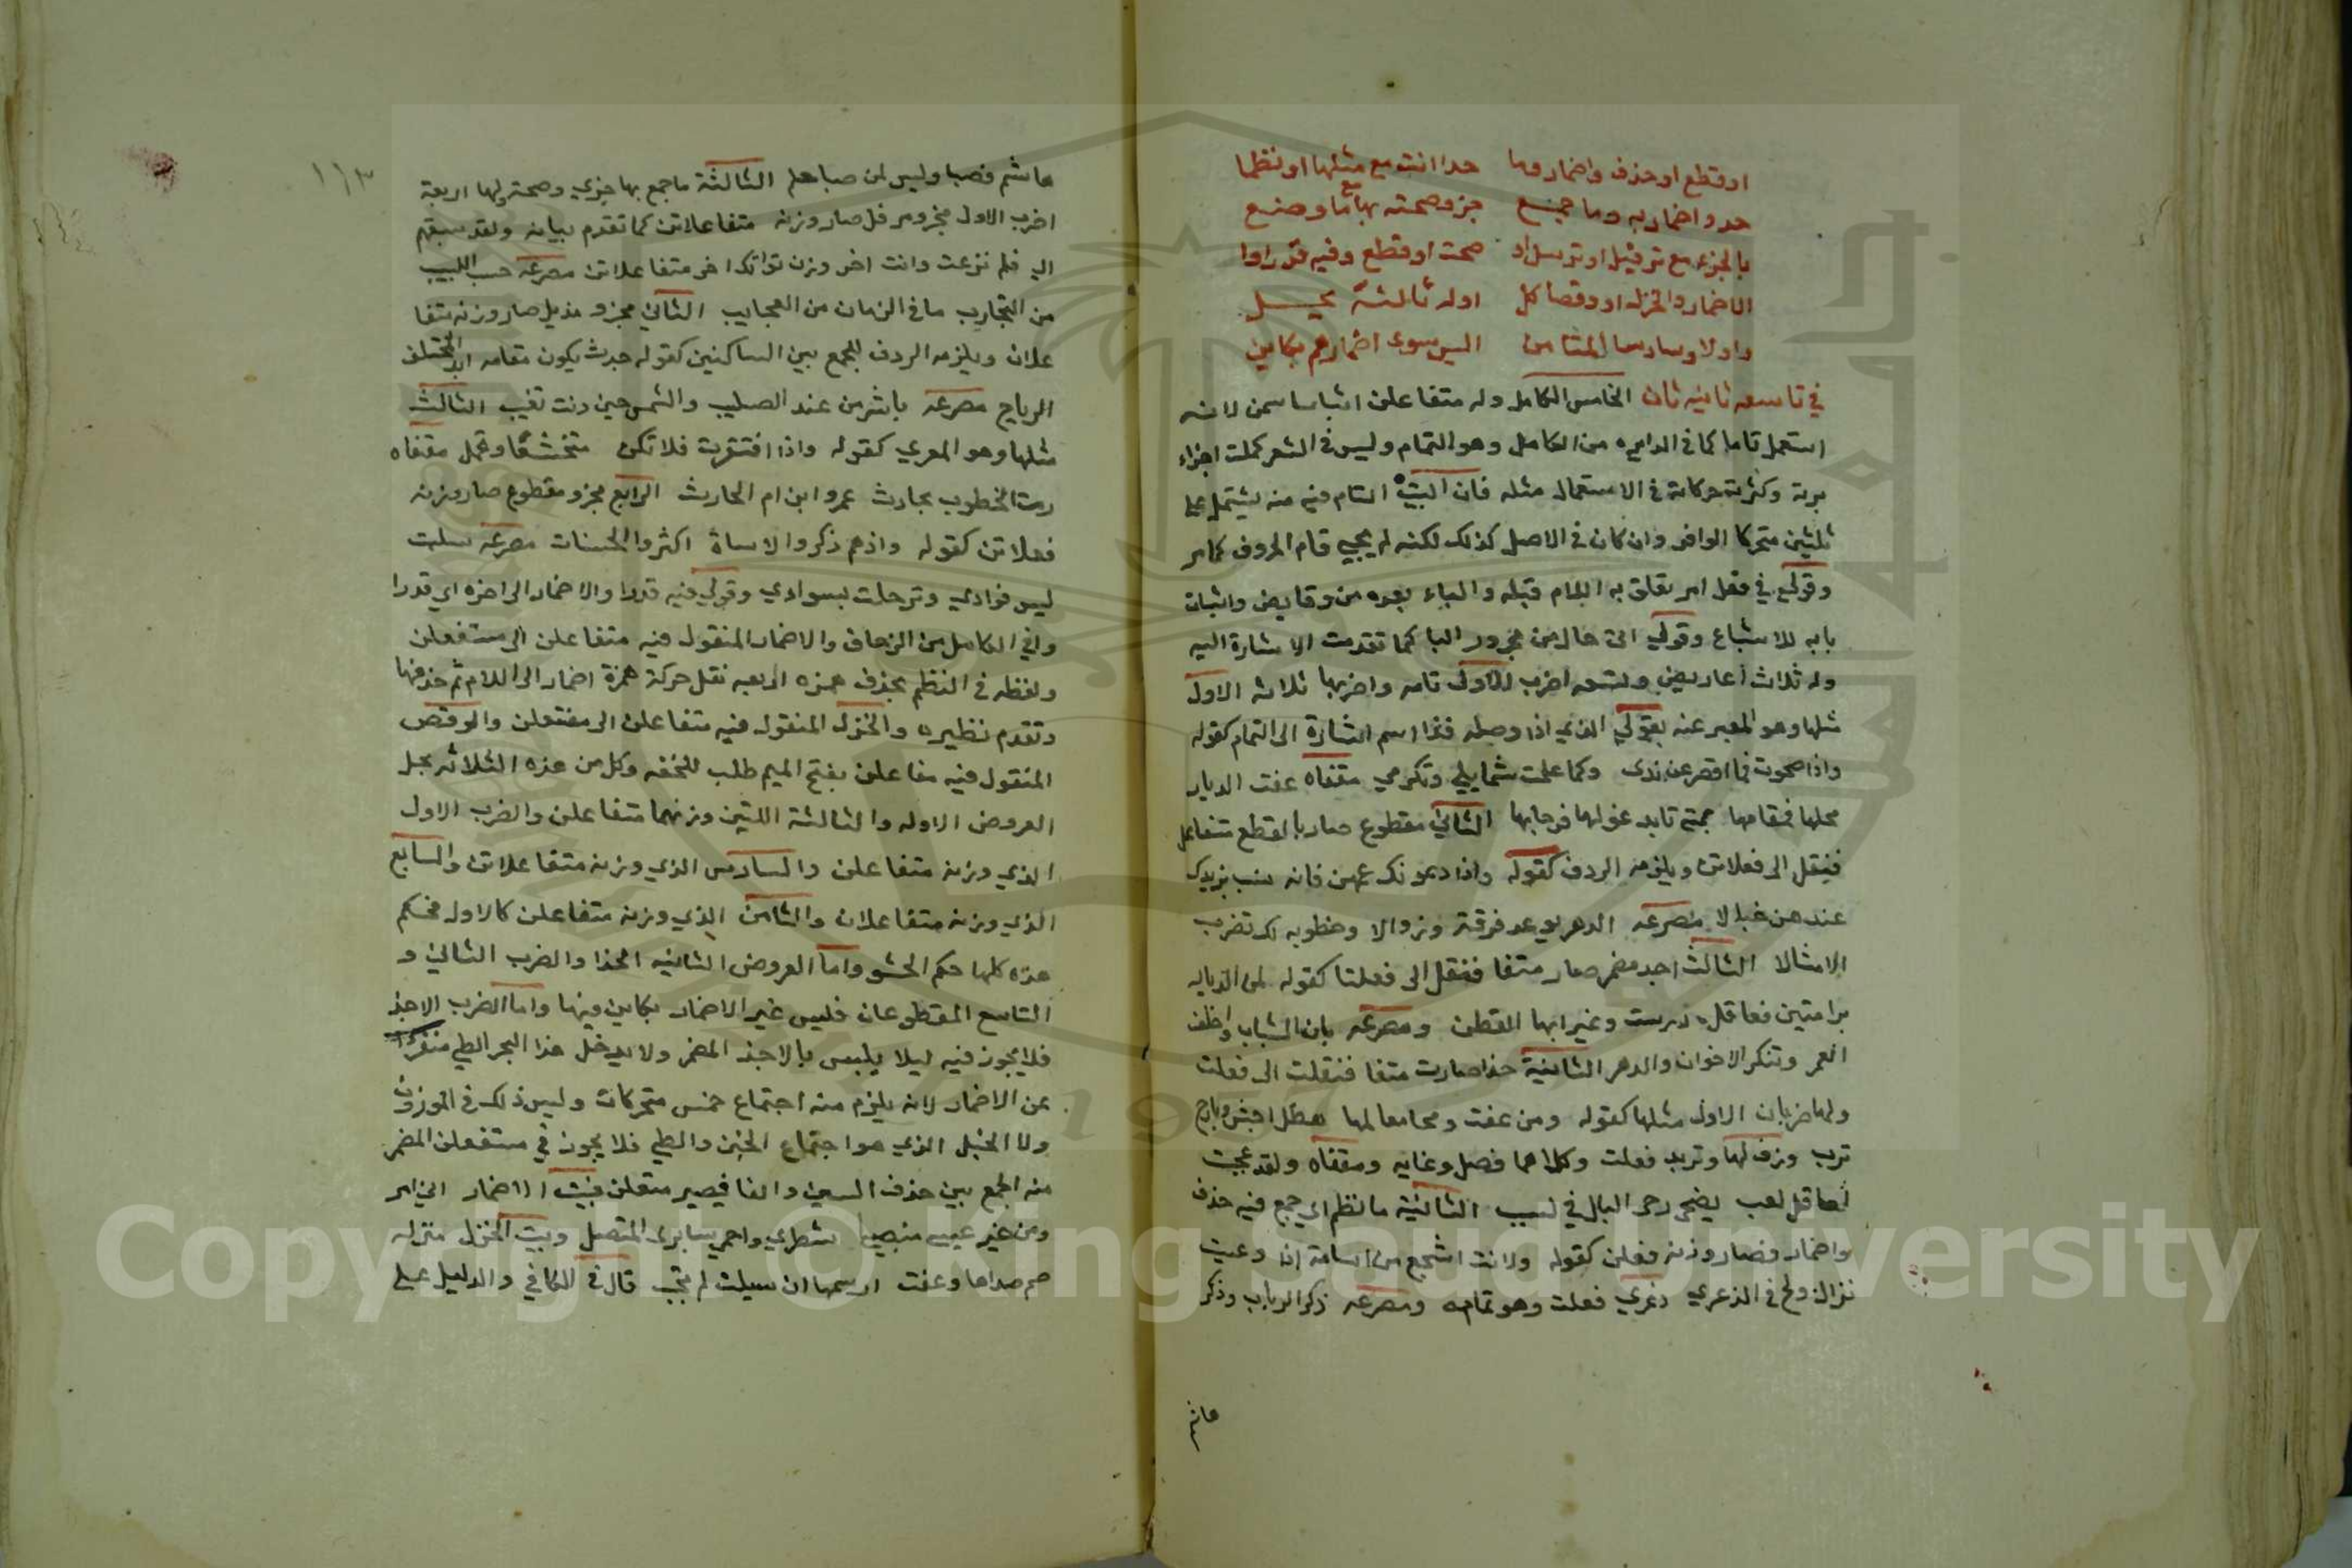 او قطع او حذف واضمار وما حدا انت مع مثلها او نظما
حد واضمار به وما جمع جزو صحته بها مع ما وضع
بالجزء مع ترفيل او تذييل او صحت او قطع وفيه قد راوا
الاضمار والخزل او وقصا كل اوله ثالثة يحل
واولا وسادسا الثامن ليس سوى اضمارهم بكاين
في تاسعه ثانيه ثان الخامس الكامل وله متفاعلن لانه
استعمل تاما كما في الدايره من الكامل وهو التمام وليس في الشعر كملت اجزاء
وكثرت حركاته في الاستعمال مثله فان البيت التام فيه منه يشتمل على
ثلثين متحركا الوافر وان كان في الاصل كذلك لكنه لم يجي تام الحروف كما مر
وقولي في فعل امر تعلق به اللام قبله والباء بعده من وقايض واثبات
بابه للاشباع وقولي اتى حال من مجرور البا كما تقدمت الاشارة اليه
وله ثلاث اعاريض وتسعه اضرب الاولى تامه واضربها ثلاثه الاول
مثلها وهو المعبر عنه بقولي الذي اذا وصله فذا اسم اشارة الى التمام كقوله
واذا صحوت فما اقصر عن ندى وكما علمت شمايلي وتكرمي مقفاه عفت الديار
محلها فمقامها بمنى تابد غولها فرجامها الثاني مقطوع صار بالقطع متفاعل
فينقل الى فعلاتن ويلزمه الردف كقوله واذا دعونك عمهن فانه نسب يزيدك
عندهن خبالا مصرعه الدهر يوعد فرقة وزوالا وخطوبه لك تضرب
الامثالا الثالث احد مضمر صار متفا فنقل الى فعلن كقوله لمن الديار
برامتين فعاقل درست وغير ايها القطر ومصرعه بان الشباب واخلف
العمر وتنكر الاخوان والدهر الثانية حذا صارت متفا فنقلت الى فعلن
ولها ضربان الاول مثلها كقوله ومن عفت ومحا معالمها هطل اجش وبارح
ترب ونزف لها وترب فعلن وكلاهما فصل وغايه ومقفاه ولقد عجبت
لعاقل لعب يضحي رخي البال في لبب الثاني ما نظم اي جمع فيه حذف
واضمار فصار وزنه فعلن كقوله ولانت اشجع من اسامة اذا دعيت
نزال ولج في الذعري ذعري فعلن وهو تمامه ومصرعه ذكر الرباب وذكر
هاشم فصبا وليس لمن صبا حلم الثالثة ما جمع بها جزي وصحة ولها اربعة
اضرب الاول مجزو مرفل صار وزنه متفاعلاتن كما تقدم بيانه ولقد سبقتهم
الي فلم نزعت وانت اخر وزن تواتك اخر متفاعلاتن مصرعه حسب اللبيب
من التجارب ما في الزمان من العجايب الثاني مجزو مذيل صار وزنه متفا
علان ويلزمه الردف للجمع بين الساكنين كقوله جدث يكون مقامه ابدا بمختلف
الرياح مصرعه عند الصليب والشمس حين دنت تغيب الثالث
مثلها وهو المعري كقوله واذا افتقرت فلا تكن متخشعا وتجمل مقفاه
رمت الخطوب بحادث عمرو ابن ام الحارث الرابع مجزو مقطوع صار وزنه
فعلاتن كقوله واذا هم ذكروا الاساة اكثروا الحسنات مصرعه سلبت
ليس فوادي وترحلت بسوادي وقولي فيه قدرا والاضمار الى اخره اي قدرا
وافي الكامل من الزحاف والاضمار المنقول فيه متفاعلن الى مستفعلن
ولفظه في النظم بحذف همزه الدبعه نقل حركة همزة اضمار الى اللام ثم حذفها
وتقدم نظيره والخزل المنقول فيه متفاعلن الى مفتعلن والوقص
المنقول فيه مفاعلن بفتح الميم طلب للخفه وكل من هذه الثلاثه يحل
العروض الاوله والثالثة اللتين وزنهما متفاعلن والضرب الاول
الذي وزنه متفاعلن والسادس الذي وزنه متفاعلاتن والسابع
الذي وزنه متفاعلان والثامن الذي وزنه متفاعلن كالاول فحكم
هذه كلها حكم الحشو واما العروض الثانيه الحذا والضرب الثاني و
التاسع المقطوعان فليس غير الاضمار بكاين فيها واما الضرب الاحذ
فلا يجوز فيه ليلا يلبس بالاحذ المضمر ولا يدخل هذا البحر الطي منفردا
عن الاضمار لانه يلزم منه اجتماع خمس متحركات وليس ذلك في الموزون
ولا الخبل الذي هو اجتماع الخبن والطي فلا يجوز في مستفعلن المضمر
منه الجمع بين حذف السين والفا فيصير متعلن فبيت الاضمار اني امر
ومن خير عبس منصبا شطري واحمي سايري بالمنصل وبيت الخزل منزله
صم صداها وعفت ارسمها ان سيلت لم تجب قال في الكافي والدليل على
١١٣
Copyright © King Saud University
1957